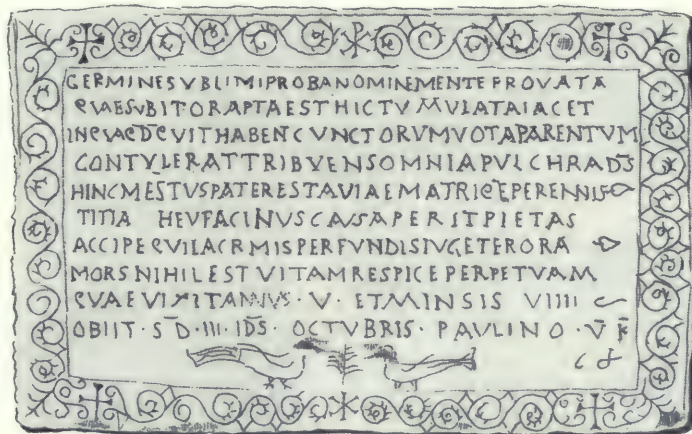 GERMINE SVBLIMI PROBA NOMINE MENTE PROVATA
QVAE SVBITO RAPTA EST HIC TVMVLATA IACET
IN QVA QD QVIT HABEN CVNCTORVM VOTA PARENTVM
CONTVLERAT TRIBVENS OMNIA PVLCHRA D̅S̅
HINC MESTVS PATER EST AVIAE MATRIQ E PERENNIS
TITIA HEV FACINVS CAVSA PERIT PIETAS
ACCIPE QVI LACRMIS PERFVNDIS IVGETER ORA
MORS NIHIL EST VITAM RESPICE PERPETVAM
QVAE VIXIT ANNVS · V · ET MINSIS VIIII
OBIIT · S̅D̅ · III · ID̅S̅ · OCTVBRIS · PAVLINO · V̅